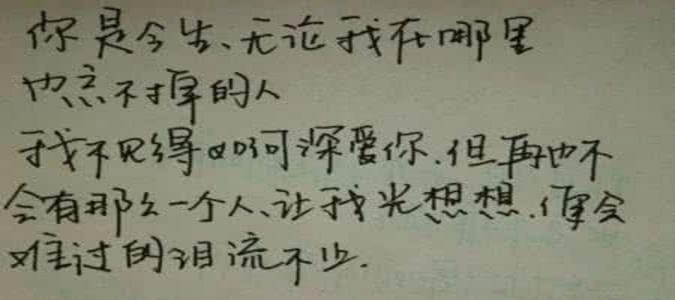 你是今生、无论我在哪里
也忘不掉的人
我不见得如何深爱你.但再也不
会有那么一个人、让我光想想.便会
难过的泪流不止.